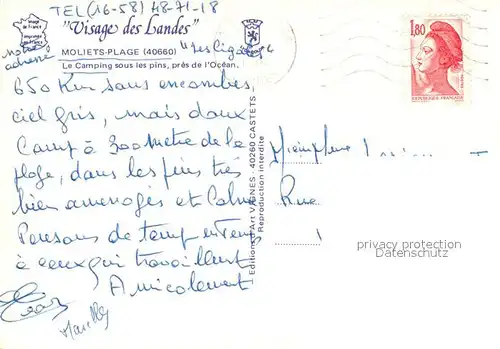 TEL (16-58) 48-71-18
"Visage des Landes"
Image de France
Imprimé en France
notre adresse
MOLIETS-PLAGE (40660) "les Cigales"
Le Camping sous les pins, près de l'Océan.
650 Km sans encombres,
ciel gris, mais doux
Camp à 300 metre de la
plage, dans les pins très
bien amenagés et Calme
Pensons de temps en temps
à ceux qui travaillent
Amicalement
Editions d'Art VAGNES - 40260 CASTETS
Reproduction interdite
1,80
REPUBLIQUE FRANÇAISE
Rue
privacy protection
Datenschutz